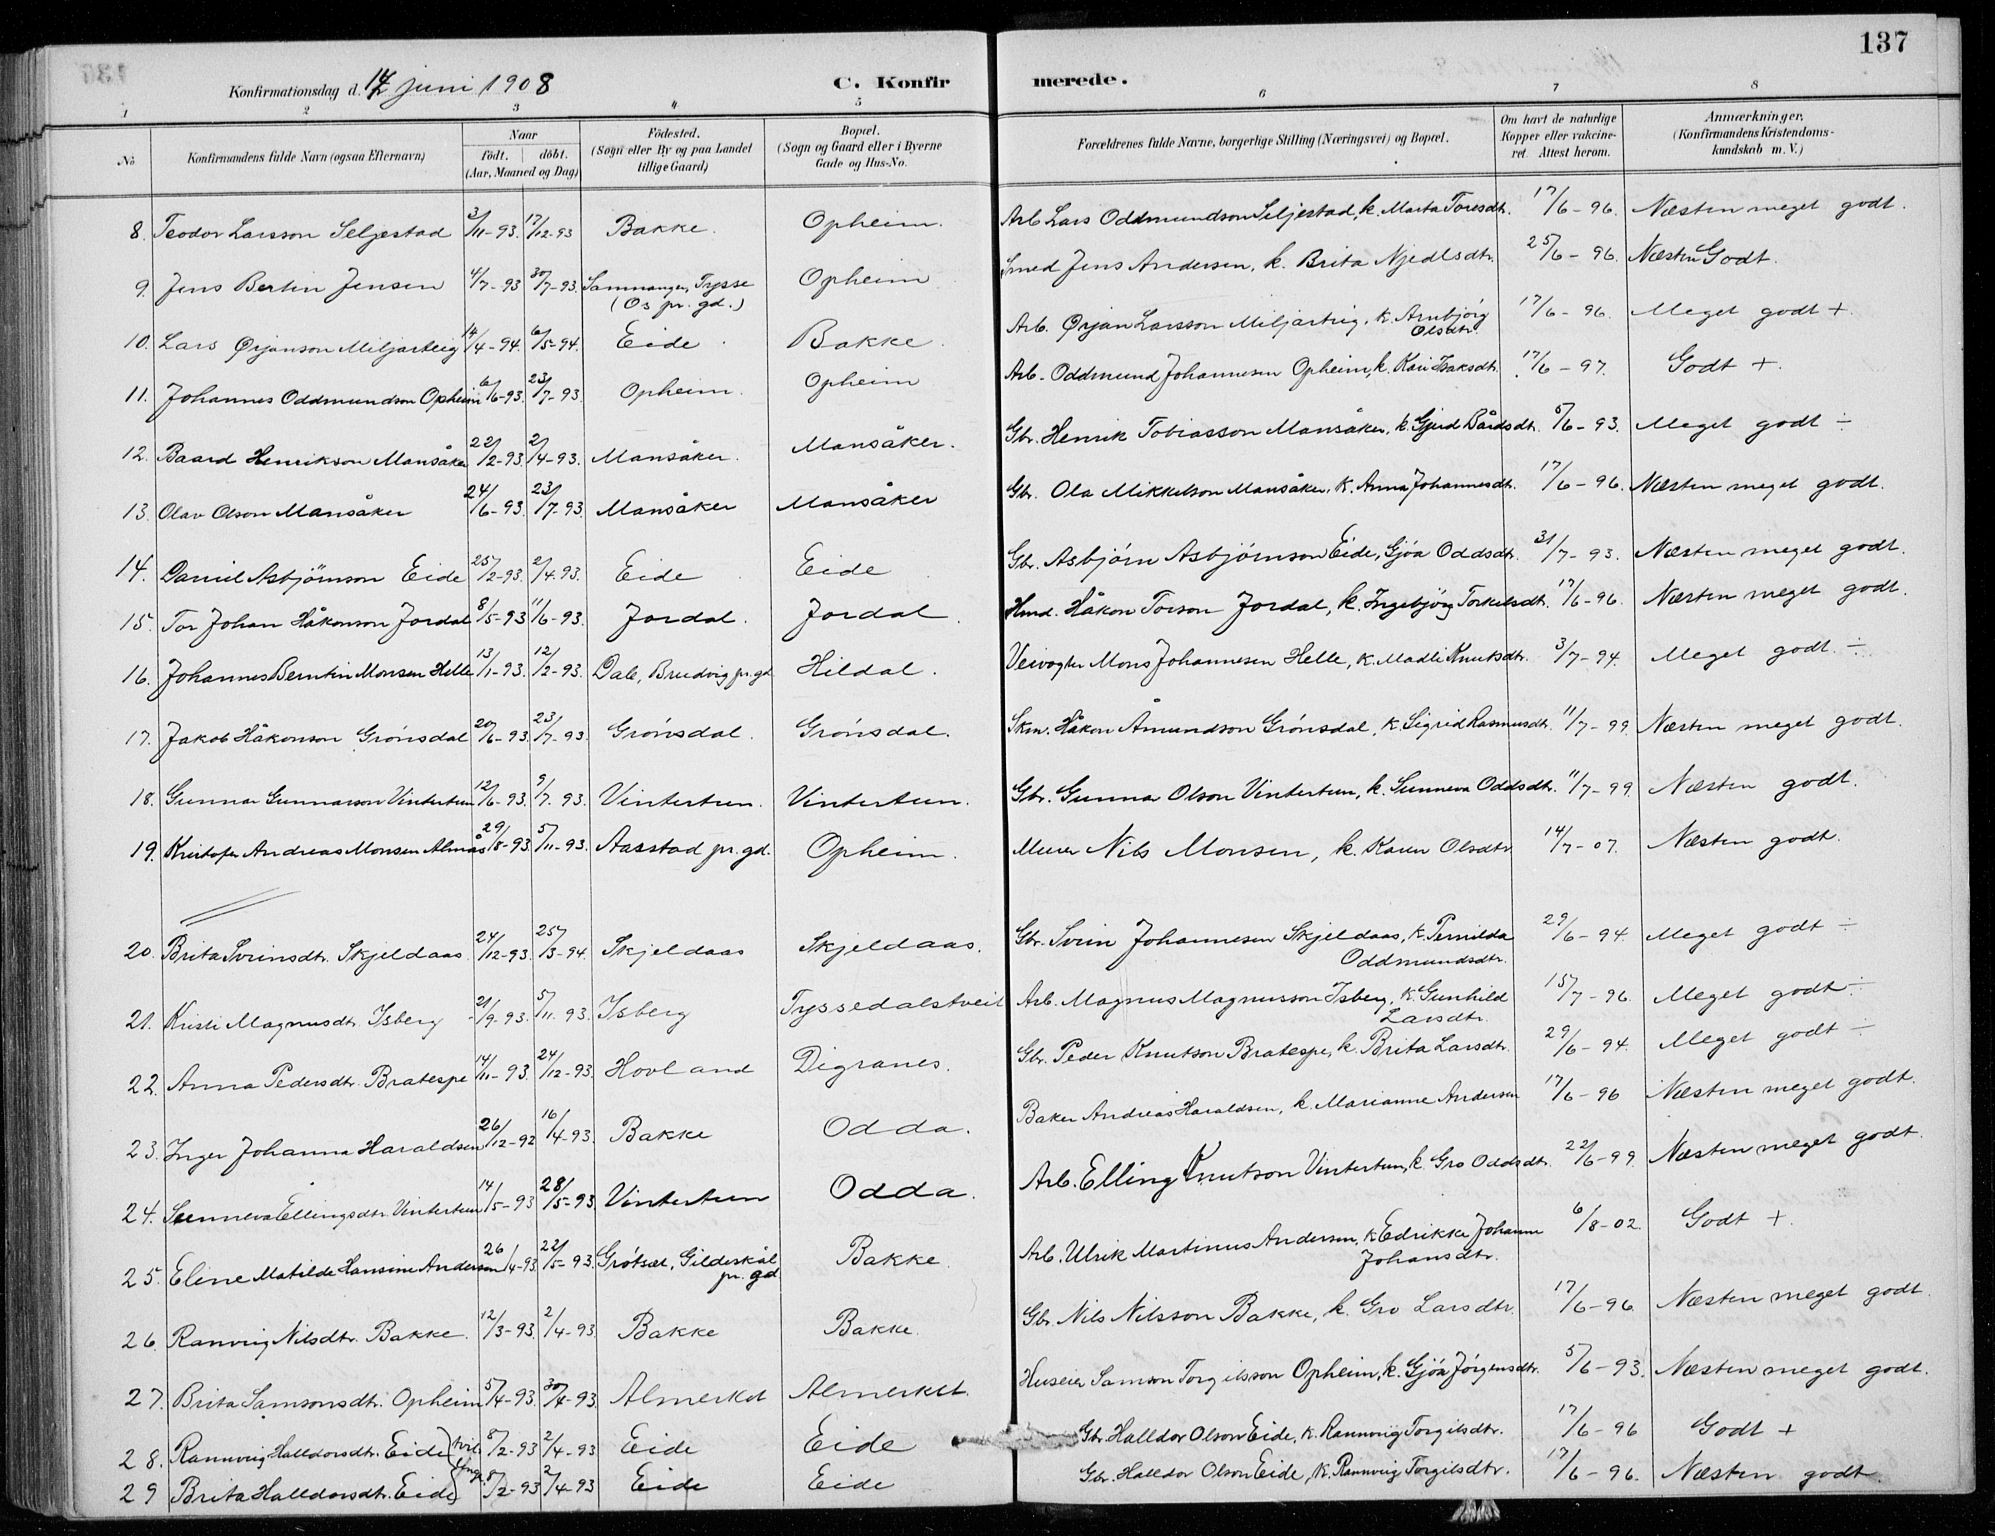 137
Konfirmationsdag d. 14 juni 1908
C. Konfirmerede.
1 2 3 4 5 6 7 8
No
Konfirmandens fulde Navn (ogsaa Efternavn)
Naar
födt. döbt.
(Aar, Maaned og Dag)
Födested.
(Sogn eller By og paa Landet tillige Gaard)
Bopæl.
(Sogn og Gaard eller i Byerne Gade og Hus-No.
Forældrenes fulde Navne, borgerlige Stilling (Næringsvei) og Bopæl.
Om havt de naturlige Kopper eller vakcineret. Attest herom.
Anmærkninger.
(Konfirmandens Kristendomskundskab m. V.)
8. Teodor Larsson Seljestad 3/11-93. 17/12-93 Bakke. Opheim. Arb. Lars Oddmundson Seljestad, k. Marta Toresdtr. 17/6-96. Næsten meget godt.
9. Jens Bertin Jensen 4/7-93 30/7-93. Sammanger, Tysse (Os pr. gd.) Opheim Smed Jens Andersen, k. Brita Njedlsdtr. 25/6-96. Næsten Godt.
10. Lars Ørjanson Miljarteig 14/4-94. 6/5-94. Eide. Bakke. Arb. Ørjan Larsson Miljarteig, k. Arnbjörg Olsdtr. 17/6-96. Meget godt +
11. Johannes Oddmundson Opheim 6/6-93. 23/7-93. Opheim. Opheim Arb. Oddmund Johannesen Opheim, k. Kari Isaksdtr. 17/6-97. Godt +.
12. Baard Henrikson Mansåker 22/2-93. 2/4-93. Mansåker. Mansåker. Gbr. Henrik Tobiasson Mansåker, k. Gjerd Bårdsdtr. 5/6-93. Meget godt ÷
13. Olav Olson Mansåker 24/6-93. 23/7-93. Mansåker Mansåker Gbr. Ola Mikkelson Mansåker, k. Anna Johannesdtr. 17/6-96. Næsten meget godt.
14. Daniel Asbjörnson Eide 25/2-93. 2/4-93. Eide Eide Gbr. Asbjörn Asbjörnson Eide, Gjöa Oddsdtr. 31/7-93. Næsten meget godt.
15. Tor Johan Håkonson Jordal 8/5-93 11/6-93. Jordal. Jordal. Hmd. Håkon Torson Jordal, k. Ingebjörg Torkelsdtr. 17/6-96. Næsten meget godt.
16. Johannes Berntin Monsen Helle 13/1-93. 12/2-93. Dale, Brudvig pr. gd Hildal. Veivogter Mons Johannesen Helle, k. Madli Knutsdtr. 3/7-94. Meget godt. ÷
17. Jakob Håkonson Grönsdal 20/6-93. 23/7-93. Grönsdal. Grönsdal. Skm. Håkon Åmundson Grönsdal, k. Sigrid Rasmusdtr. 11/7-99. Næsten meget godt.
18. Gunnar Gunnarson Vintertun 12/6-93. 9/7-93. Vintertun. Vintertun. Gbr. Gunnar Olson Vintertun, k. Sunneva Oddsdtr. 11/7-99. Næsten godt.
19. Kristofer Andreas Monsen Almås 29/8-93. 5/11-93. Aasstad pr. gd. Opheim. Murer Nils Monsen, k. Karen Olsdtr 14/7-07. Næsten godt.
20. Brita Sveinsdtr. Skjeldaas 24/12-93. 25/3-94. Skjeldaas Skjeldaas. Gbr. Svein Johannesen Skjeldaas, k. Pernilda Oddmundsdtr. 29/6-94. Meget godt ÷
21. Kristi Magnusdtr. Isberg 21/9-93. 5/11-93. Isberg Tyssedalstveit Arb. Magnus Magnusson Isberg, k. Gunhild Larsdtr. 15/7-96. Meget godt ÷
22. Anna Pedersdtr. Bratespe 14/11-93. 24/12-93. Hovland Digranes. Gbr. Peder Knutson Bratespe, k. Brita Larsdtr. 29/6-94. Meget godt ÷
23. Inger Johanna Haraldsen 26/12-92 16/4-93. Bakke Odda. Baker Andreas Haraldsen, k. Marianne Andersen 17/6-96 Næsten meget godt.
24. Sunneva Ellingsdtr. Vintertun 14/5-93 28/5-93. Vintertun Odda. Arb. Elling Knutson Vintertun, k. Gro Oddsdtr. 22/6-99. Næsten meget godt.
25. Eline Matilde Hansine Andersen 26/4-93. 22/5-93. Grötset, Gildeskål pr. gd Bakke. Arb. Ulrik Martinus Andersen, k. Edrikke Johanne Johansdtr. 6/8-02. Godt +.
26. Ranveig Nilsdtr. Bakke. 12/3-93. 2/4-93. Bakke Bakke. Gbr. Nils Nilsson Bakke, k. Gro Larsdtr. 17/6-96. Næsten meget godt.
27. Brita Samsonsdtr. Opheim 5/4-93. 30/4-93. Almerket Almerket. Huseier Samson Torgilsson Opheim, k. Gjöa Jörgensdtr. 5/6-93. Næsten meget godt.
28. Rannveig Halldorsdtr. Eide tvil. 8/2-93 2/4-93 Eide Eide Gbr. Halldor Olson Eide, k. Rannveig Torgilsdtr. 17/6-96 Godt +
29 Brita Halldorsdtr. Eide 8/2-93 2/4-93 Eide Eide Gbr. Halldor Olson Eide, k. Rannveig Torgilsdtr. 17/6-96. Næsten godt.